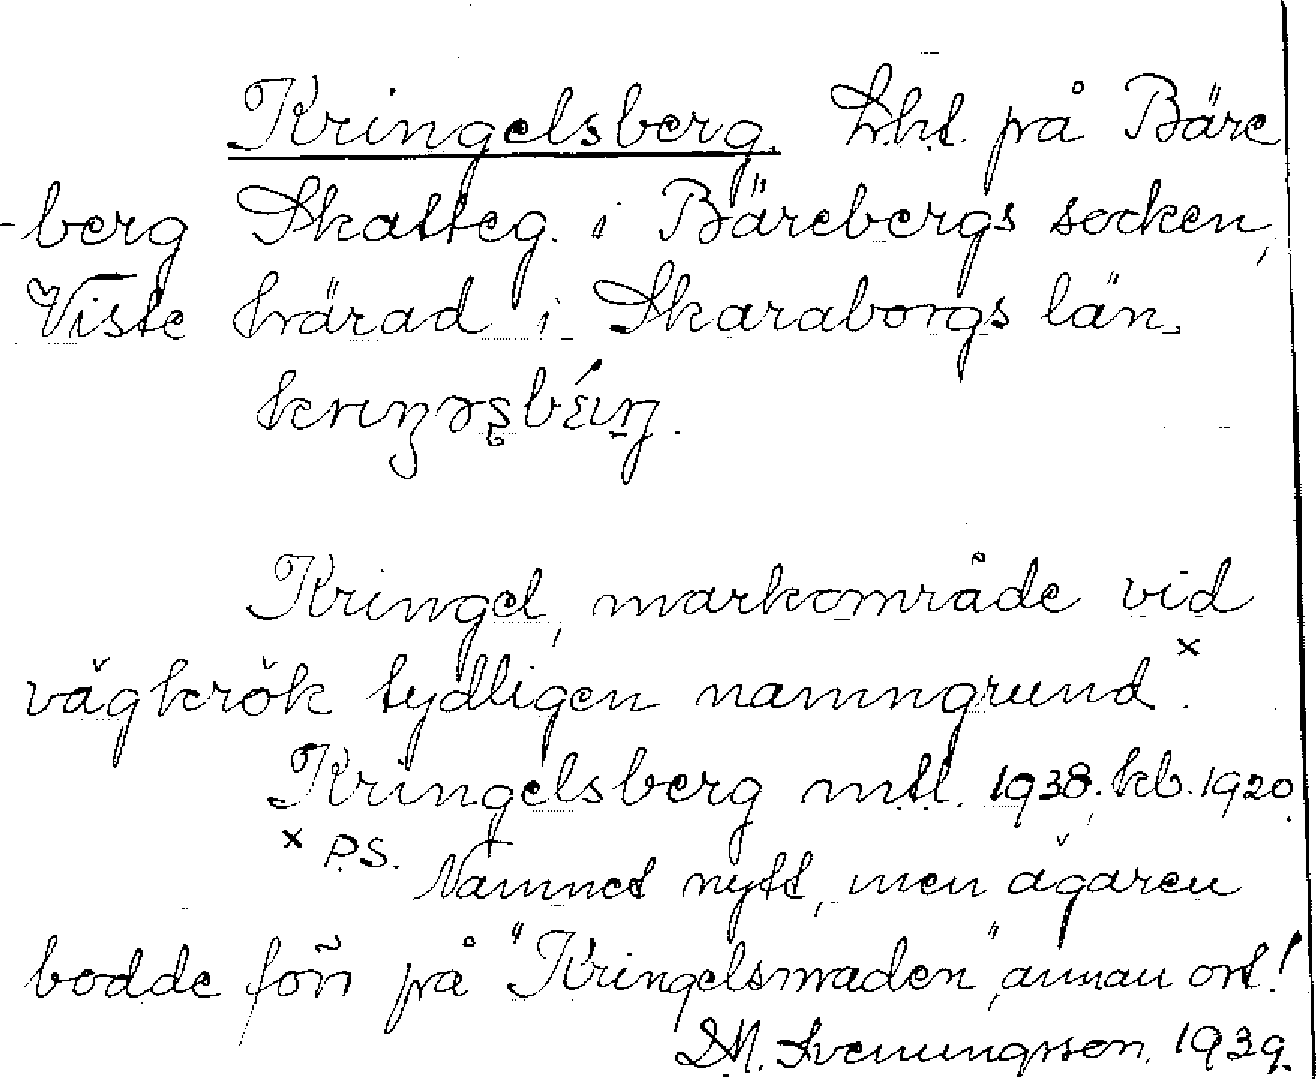 Kringelsberg. Lht. på Bäre
-berg Skatteg. i Bärebergs socken,
Viste härad i Skaraborgs län.
Kringel, markområde vid
vägkrök tydligen namngrund.ˣ
Kringelsberg mtl. 1938, kb. 1920.
x P.S. Namnet nytt, men ägaren
bodde förr på "Kringelsmaden", annan ort!
Svenungsson. 1939.